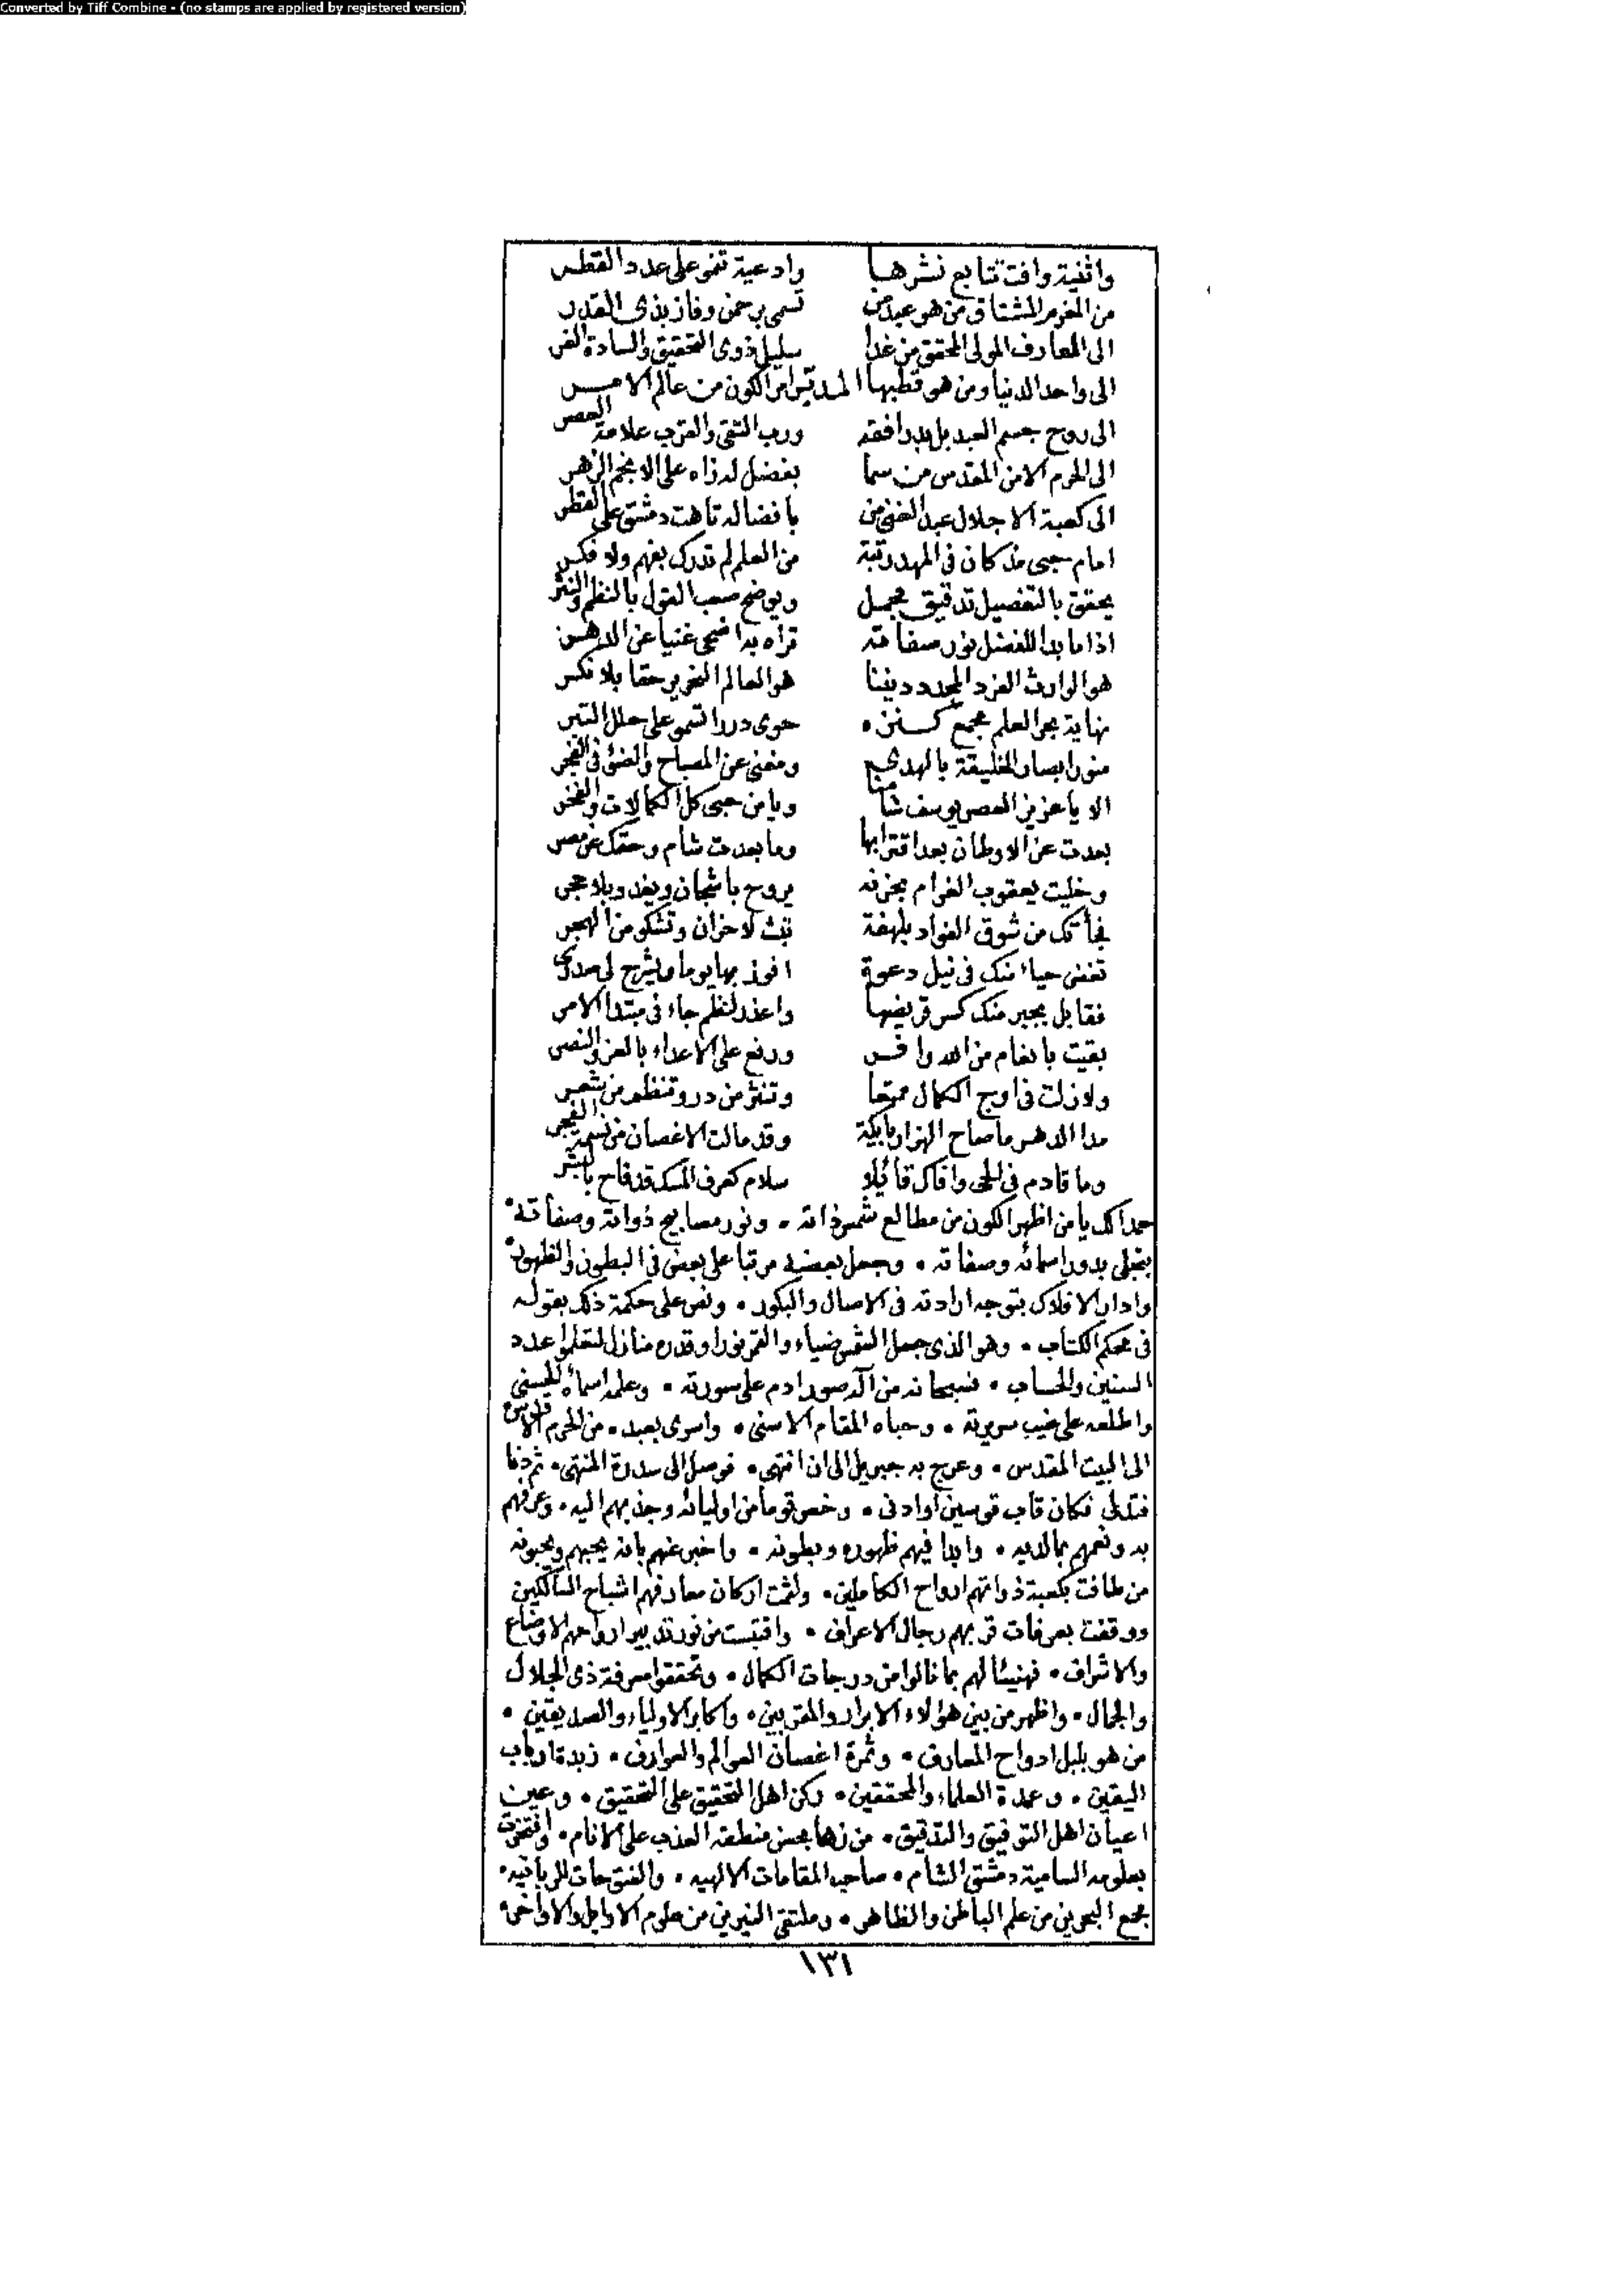 Converted by Tiff Combine - (no stamps are applied by registered version)
واثنية وافت تتابع نشرها وادعية تنمو على عدد القطر
من المغرم المشتاق من هو عبد من تسمى برحمن وفاز بذى القدر
الى المعارف المولى المحقق من غدا سليل ذوى التحقيق والسادة الغر
الى واحد الدنيا ومن هو قطبها المدبر امر الكون من عالم الامر
الى روح جسم العبد بل بدر افقه ورب التقى والقرب علامة العصر
الى الحرم الامن المقدس من سما بفضل له زاه على الانجم الزهر
الى كعبة الاجلال عبد الغنى من بافضاله تاهت دمشق على القطر
امام حبى مذ كان فى المهد رتبة من العلم لم تدرك بفهم ولا فكر
يحقق بالتفصيل تدقيق مجمل ويوضح صعب القول بالنظم والنثر
اذا ما بدا للفضل نور صفاته تراه بدا ضحى غنيا عن الدهر
هو الوارث الفرد المجدد ديننا هو العالم النحرير حقا بلا نكر
نهاية بحر العلم مجمع كنز حوى دررا تسمو على حلل التبر
منور ابصار الخليقة بالهدى ومغنى عن المصباح والضوء فى الفجر
الا يا عزيز العصر يوسف شامنا ويا من حبى كل الكمالات والفخر
بعدت عن الاوطان بعد اقترابها وما بعدت شام وحقك عن مصر
وخليت يعقوب الغرام بحزنه يروح باشجان ويغدو بلا حجر
فجأتك من شوق الفواد بلهفة تبث لاحزان وتشكو من الهجر
تغض حياء منك فى نيل دعوة افوز بها يوما ويشرح لى صدرى
فقابل بجبر منك كسر قريضها واعذر لنظم جاء فى مبتدا الامر
بقيت بانعام من الله وافر ورفع على الاعداء بالعز والنصر
ولا زلت فى اوج الكمال ممتعا وتنثر من در وتنظم من شعر
مدا الدهر ما صاح الهزار بايكة وقد مالت الاغصان من نسمة الفجر
وما قادم فى الحى وافاك قائلا سلام كعرف المسك قد فاح بالبشر
حمدا لك يا من اظهر الكون من مطالع شمس ذاته . ونور مصابيح ذواته وصفاته .
بتجلى بدور اسمائه وصفاته . وجعل بعضه مرتبا على بعض فى البطون والظهور .
وادار الافلاك بتوجه ارادته فى الاصال والبكور . ونص على حكمة ذلك بقوله
فى محكم الكتاب . وهو الذى جعل الشمس ضياء والقمر نورا وقدره منازل لتعلموا عدد
السنين والحساب . فسبحانه من اله صور ادم على صورته . وعلمه اسماءه الحسنى
واطلعه على غيب سريرته . وحباه المقام الاسنى . واسرى بعبده من الحرم الاقدس
الى البيت المقدس . وعرج به جبريل الى ان انتهى . فوصل الى سدرة المنتهى . ثم دنا
فتدلى فكان قاب قوسين او ادنى . وخص قوما من اوليائه وجذبهم اليه . وعرفهم
به ونعمهم بمالديه . وابدا فيهم ظهوره وبطونه . واخبر عنهم بانه يحبهم ويحبونه
من طافت بكعبة ذواتهم ارواح الكاملين . ولثمت اركان معارفهم اشباح السالكين
ووقفت بعرفات قربهم رجال الاعراف . واقتبست من نور تدبير ارواحهم الاوضاع
والاشراف . فهنيئا لهم بما نالوا من درجات الكمال . وتحققوا معرفة ذى الجلال
والجمال . واظهر من بين هولاء الابرار والمقربين . واكابر الاولياء والصديقين .
من هو بلبل ادواح المعارف . وثمرة اغصان العوالم والعوارف . زبدة ارباب
اليقين . وعمدة العلماء والمحققين . ركن اهل التحقيق على التحقيق . وعين
اعيان اهل التوفيق والتدقيق . من زها بحسن منطقه العذب على الانام . وافتخرت
بعلومه السامية دمشق الشام . صاحب المقامات الالهيه . والفتوحات الربانيه .
مجمع البحرين من علم الباطن والظاهر . وملتقى النيرين من علوم الاوايل والاواخر .
١٣١